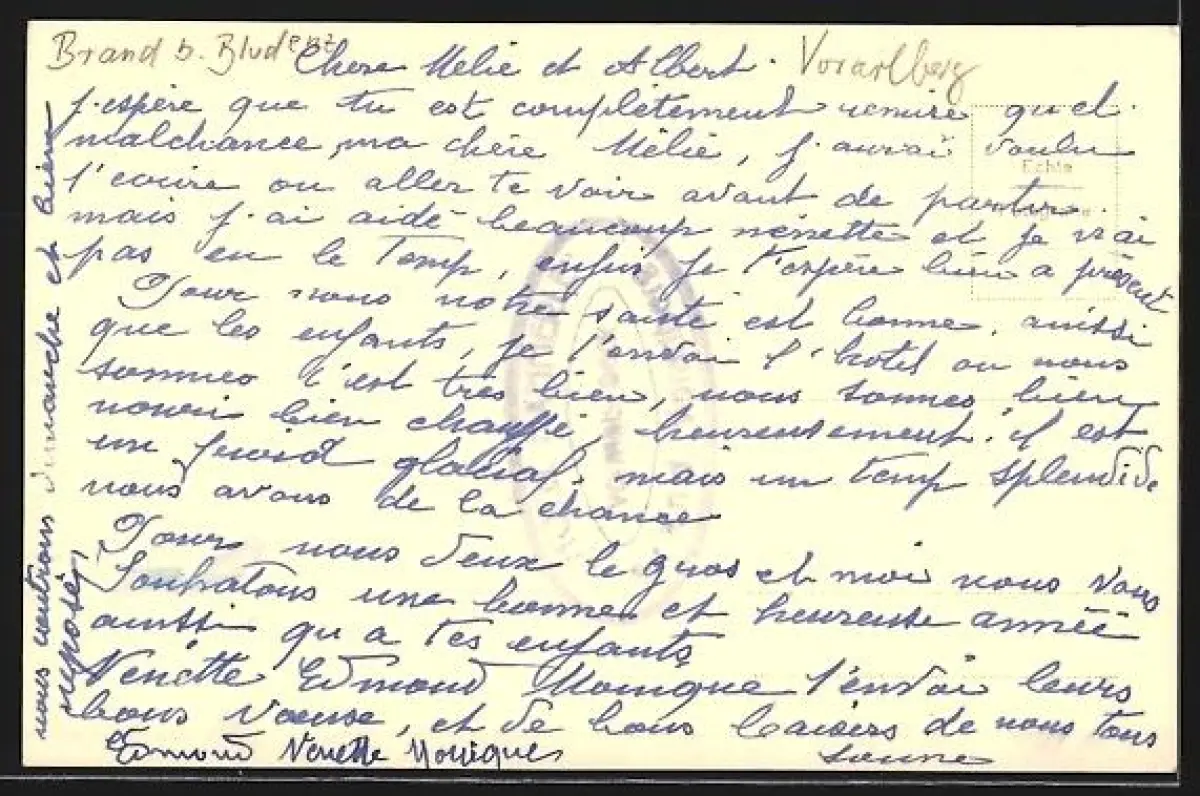 Brand b. Bludenz
Vorarlberg
Chere Mélie et Albert.
j'espère que tu est complètement remise quel
malchance, ma chère Mélie, j'aurai voulu
Echte
t'ecrire ou aller te voir avant de partir
mais j'ai aidé beaucoup nénette et je n'ai
pas eu le Temp, enfin je t'espère bien a présent
Pour nous notre santé est bonne, aussi
que les enfants, je t'envoi l'hotel ou nous
sommes c'est très bien, nous sommes bien
nouri bien chauffé, heureusement. il est
un froid glacial, mais un temp splendide
nous avons de la chance
Pour nous deux le gros et moi nous vous
Souhatons une bonne et heureuse année
aussi qu'a tes enfants
Nenette Edmond Monique t'envoi leurs
bons voeuse, et de bons baisers de nous tous
Edmond Nenette Monique
nous rentrons dimanche et bien
reposés